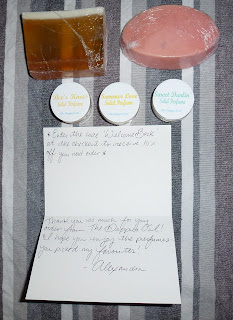 Solid Perfume
Summer Rose
Solid Perfume
Sweet
Solid Perfume
* Enter the code Welcome Back
at the checkout to receive 10%
off your next order *
Thank you so much for your
order from The Buffalo Owl!
I hope you enjoy the perfumes
my favourites!